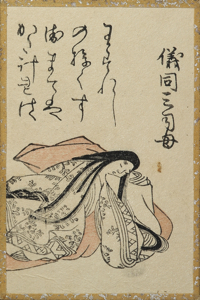 儀同三司母
わすれし
の行くす
ゑまては
かた計れは